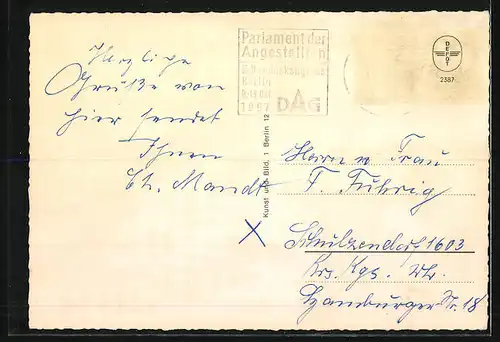 Herzliche
Grüße von
hier sendet
Ihnen
Ch. Mandt
Parlament der
Angestellten
Berlin
1967 DAG
DEFOT
2387
Kunst und Bild, 1 Berlin 12
Herrn u Frau
F. Fuhrig
Schulzendorf 1603
Krs. Kgs. Wh.
Hamburger Str. 18